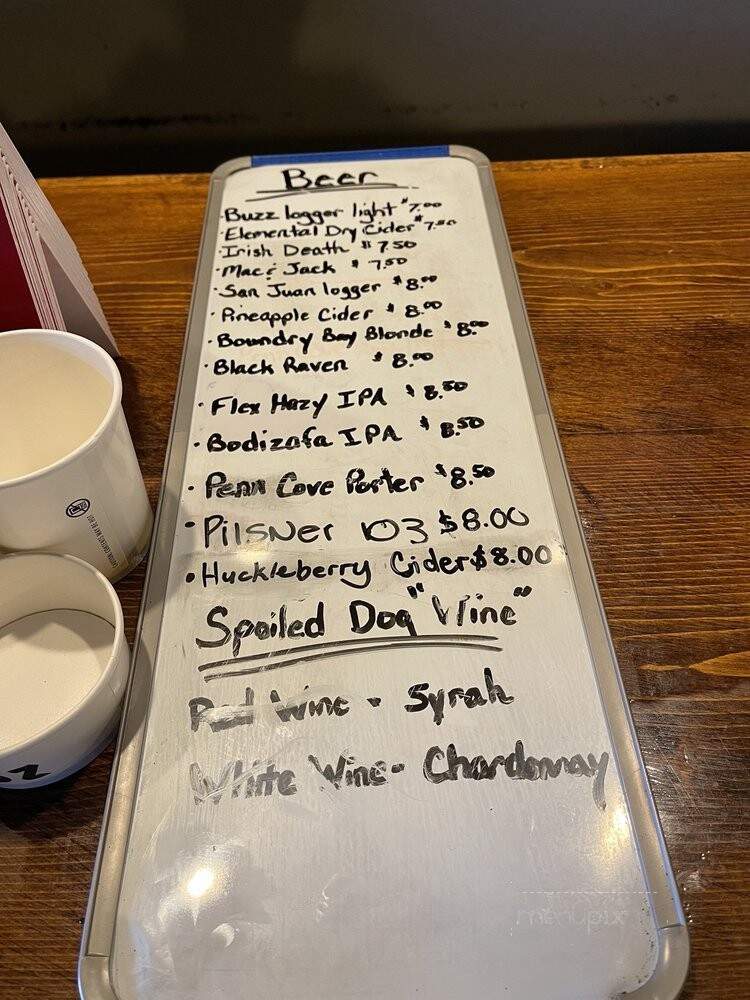 Beer
·Buzz logger light $7.00
·Elemental Dry Cider $7.50
·Irish Death $7.50
·Mac & Jack $7.50
·San Juan logger $8.00
·Pineapple Cider $8.00
·Boundry Bay Blonde $8.00
·Black Raven $8.00
·Flex Hazy IPA $8.50
·Bodizafa IPA $8.50
·Penn Cove Porter $8.50
·Pilsner 103 $8.00
·Huckleberry Cider $8.00
Spoiled Dog "Wine"
Red Wine - Syrah
White Wine - Chardonnay
menupix